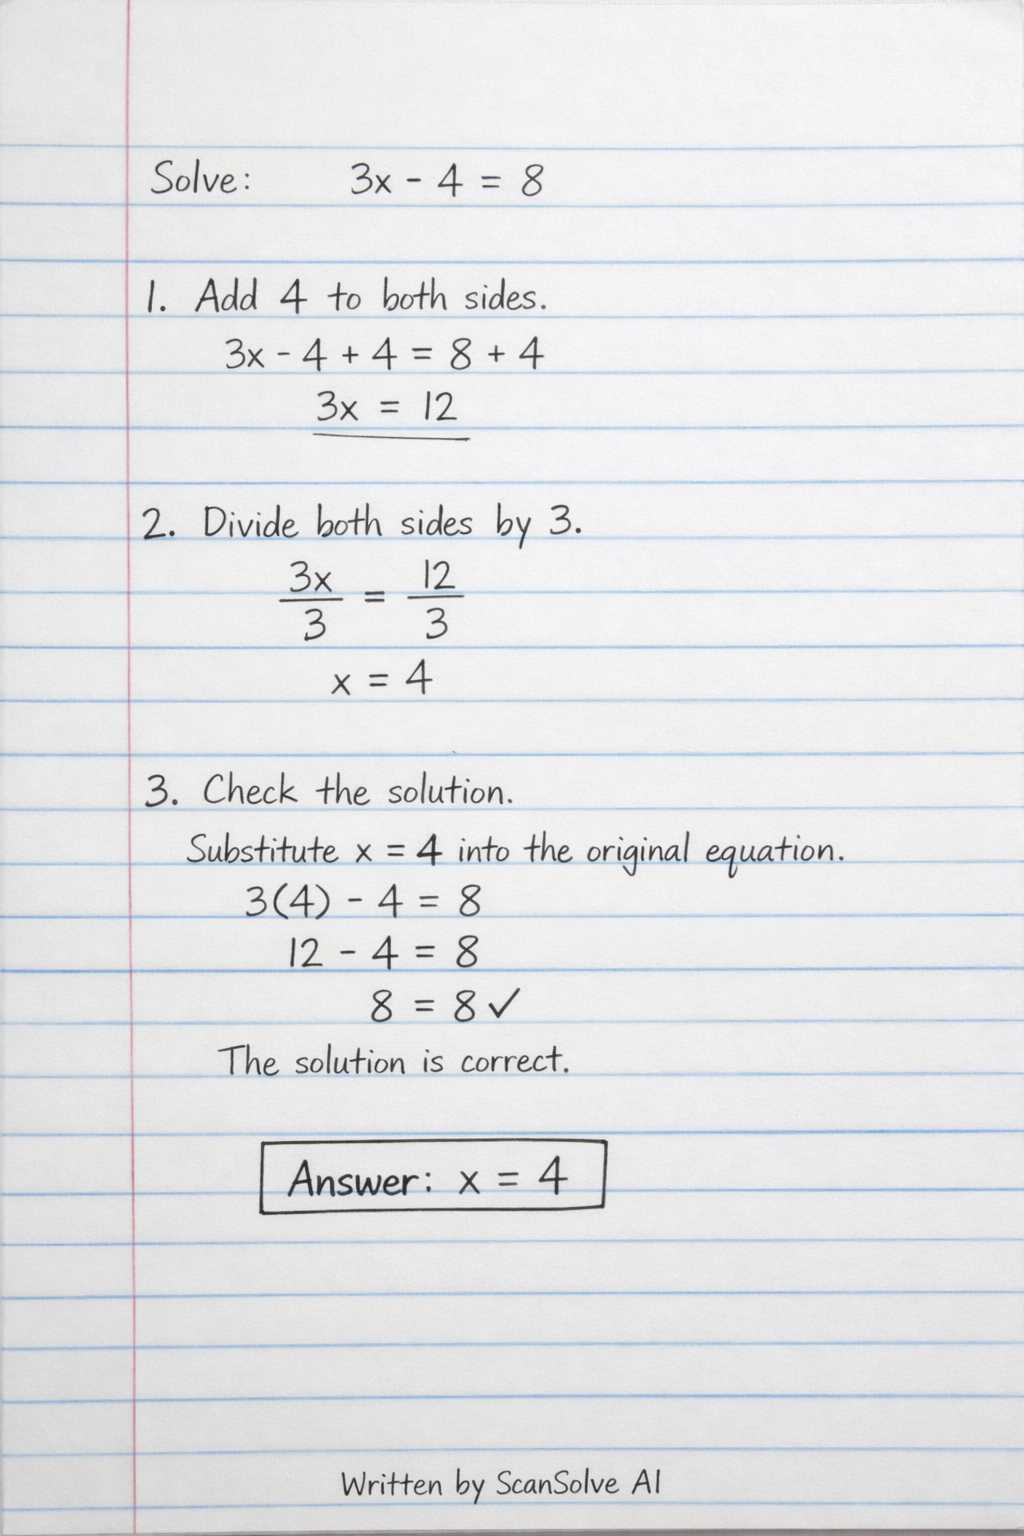 Solve: 3x - 4 = 8
1. Add 4 to both sides.
3x - 4 + 4 = 8 + 4
3x = 12
2. Divide both sides by 3.
3x/3 = 12/3
x = 4
3. Check the solution.
Substitute x = 4 into the original equation.
3(4) - 4 = 8
12 - 4 = 8
8 = 8 ✓
The solution is correct.
Answer: x = 4
Written by ScanSolve AI